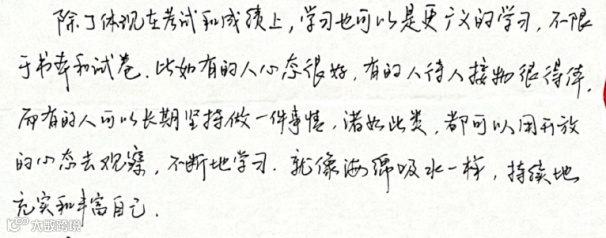 除了体现在考试和成绩上,学习也可以是更广义的学习,不限
于书本和试卷.比如有的人心态很好,有的人待人接物很得体,
而有的人可以长期坚持做一件事情,诸如此类,都可以用开放
的心态去观察,不断地学习.就像海绵吸水一样,持续地
充实和丰富自己.
大数跨境